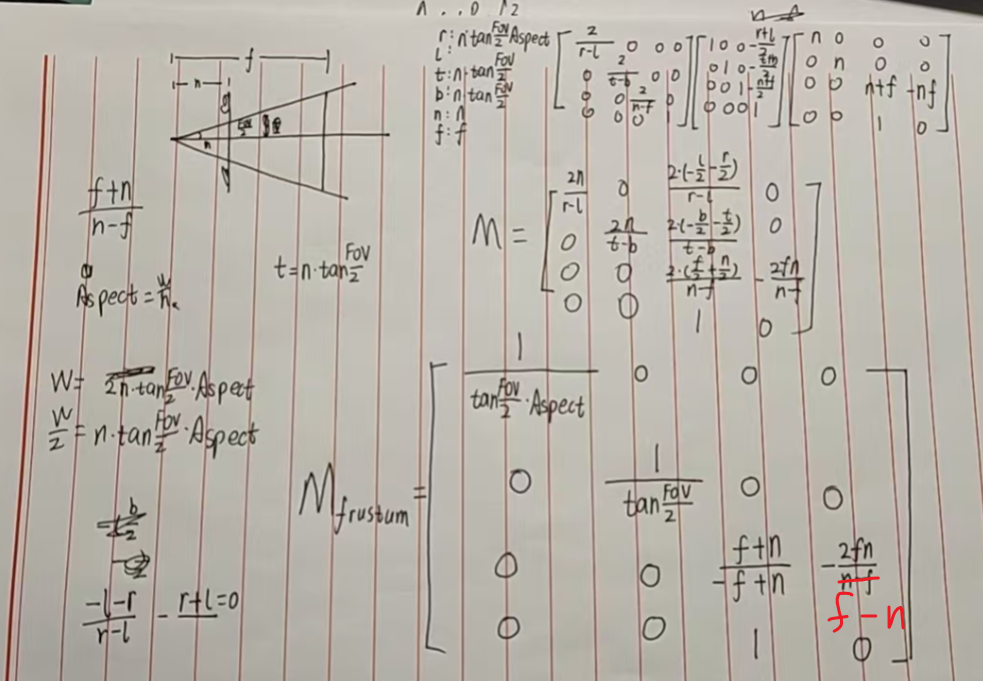 r: n tan FOV/2 Aspect
l:
t: n·tan FOV/2
b: n·tan FOV/2
n: n
f: f
[ 2/(r-l) 0 0 0 ] [ 1 0 0 -(r+l)/2 ] [ n 0 0 0 ]
[ 0 2/(t-b) 0 0 ] [ 0 1 0 ] [ 0 n 0 0 ]
[ 0 0 2/(n-f) 0 ] [ 0 0 1 -(n+f)/2 ] [ 0 0 n+f -nf ]
[ 0 0 0 1 ] [ 0 0 0 1 ] [ 0 0 1 0 ]
f
n
(f+n)/(n-f)
t=n·tan FOV/2
Aspect = w/h.
M =
[ 2n/(r-l) 0 2·(-l/2-r/2)/(r-l) 0 ]
[ 0 2n/(t-b) 2·(-b/2-t/2)/(t-b) 0 ]
[ 0 0 2·(f/2+n/2)/(n-f) -2fn/(n-f) ]
[ 0 0 1 0 ]
W= 2n·tan FOV/2·Aspect
W/2 = n·tan FOV/2·Aspect
(-l-r)/(r-l) - r+l=0
Mfrustum =
[ 1/(tan FOV/2·Aspect) 0 0 0 ]
[ 0 1/(tan FOV/2) 0 0 ]
[ 0 0 (f+n)/(-f+n) -2fn/(n-f) ]
f-n
[ 0 0 1 0 ]